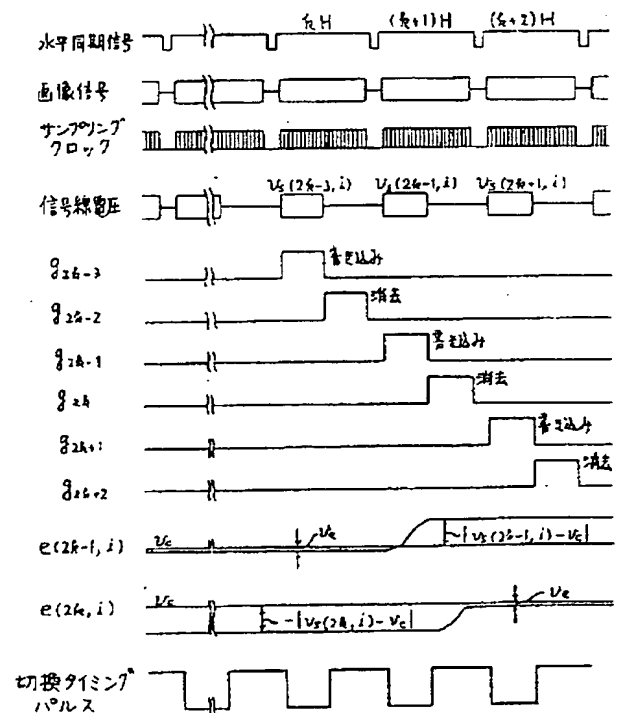 kH (k+1)H (k+2)H
水平同期信号
画像信号
サンプリング
クロック
信号線電圧 Vs(2k-3, i) Vs(2k-1, i) Vs(2k+1, i)
g2k-3 書き込み
g2k-2 消去
g2k-1 書き込み
g2k 消去
g2k+1 書き込み
g2k+2 消去
e(2k-1, i) Vc Ve |Vs(2k-1, i)-Vc|
e(2k, i) Vc -|Vs(2k, i)-Vc| Ve
切換タイミング
パルス